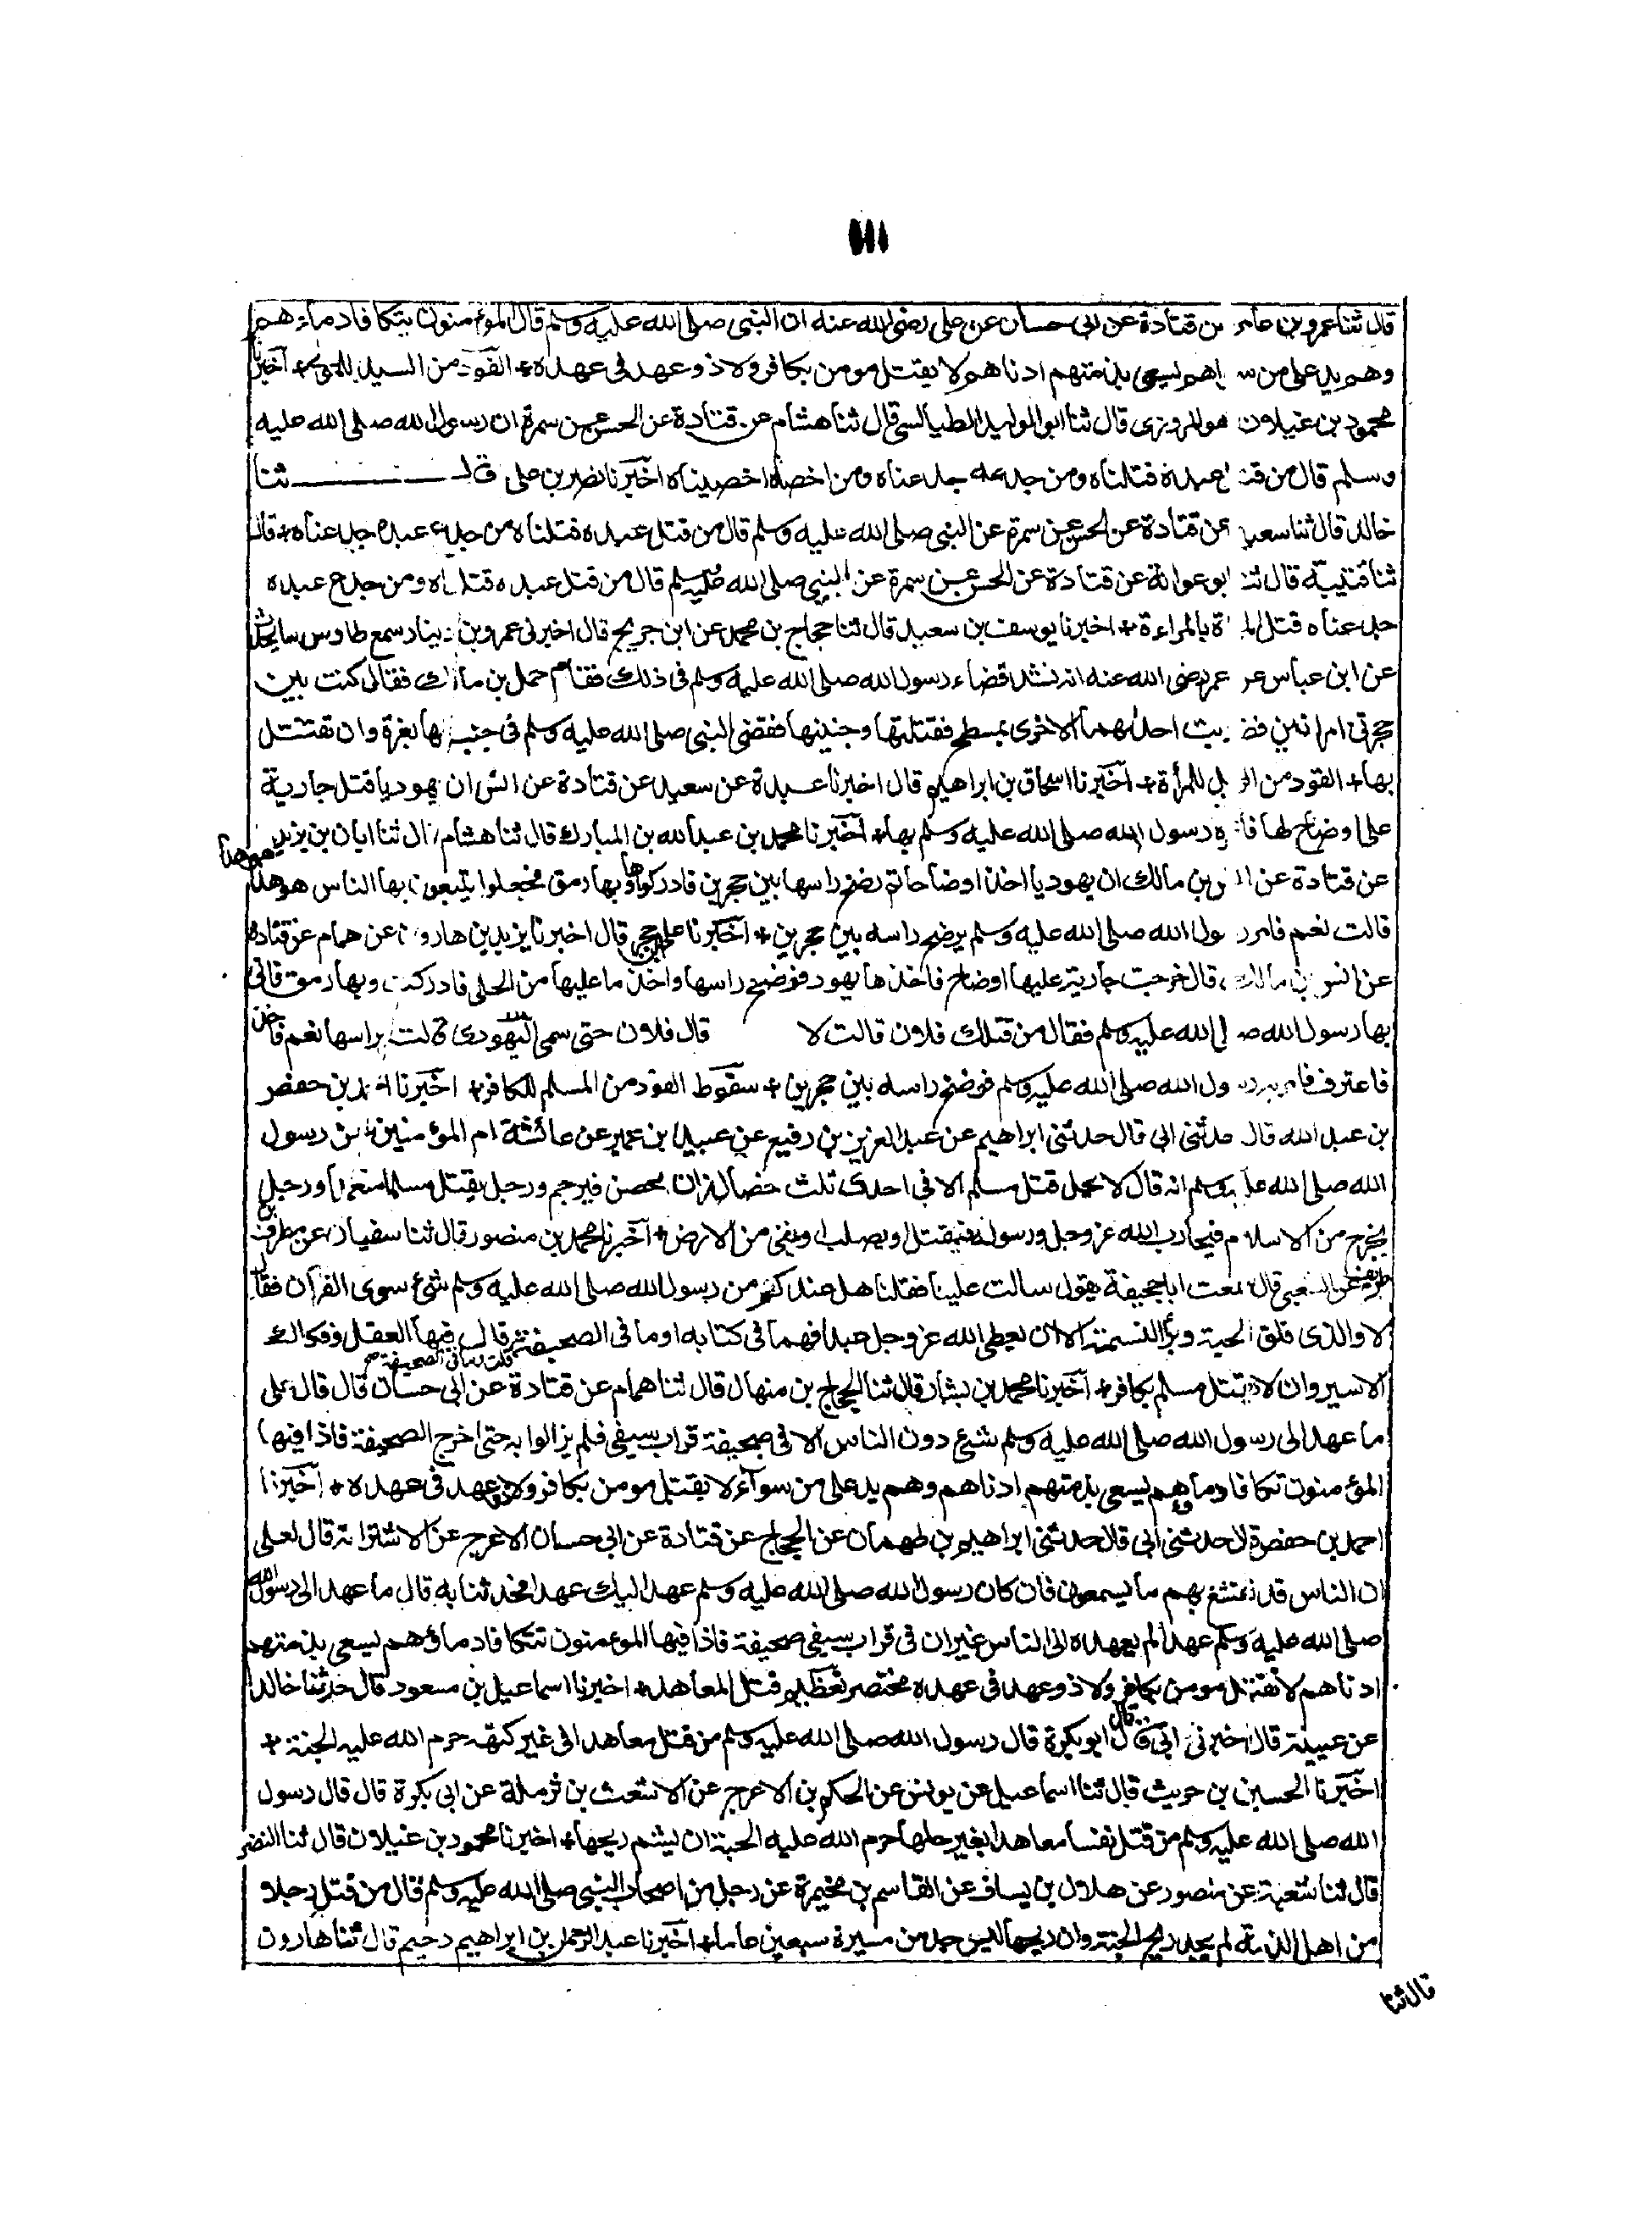 ١١١
قال ثنا عمرو بن عامر عن قتادة عن ابى حسان عن على رضى الله عنه ان النبى صلى الله عليه وسلم قال المؤمنون يتكافا دماءهم
وهم يد على من سواهم يسعى بذمتهم ادناهم لا يقتل مومن بكافر ولا ذو عهد فى عهده + القود من السيد للمولى + اخبرنا
محمود بن غيلان هو المروزى قال ثنا ابو الوليد الطيالسى قال ثنا هشام عن قتادة عن الحسن عن سمرة ان رسول الله صلى الله عليه
وسلم قال من قتل عبده قتلناه ومن جدعه جدعناه ومن اخصاه اخصيناه اخبرنا نصر بن على قال ثنا
خالد قال ثنا سعيد عن قتادة عن الحسن عن سمرة عن النبى صلى الله عليه وسلم قال من قتل عبده قتلناه من جدع عبده جدعناه + قال
ثنا قتيبة قال ثنا ابو عوانة عن قتادة عن الحسن عن سمرة عن النبى صلى الله عليه وسلم قال من قتل عبده قتلناه ومن جدع عبده
جدعناه قتل المراة بالمراءة + اخبرنا يوسف بن سعيد قال ثنا حجاج بن محمد عن ابن جريج قال اخبرنى عمرو بن دينار سمع طاوسا يحدث
عن ابن عباس عن عمر رضى الله عنه انه نشد قضاء رسول الله صلى الله عليه وسلم فى ذلك فقام حمل بن مالك فقال كنت بين
حجرتى امراتين فضربت احداهما الاخرى بمسطح فقتلتها وجنينها فقضى النبى صلى الله عليه وسلم فى جنينها بغرة وان تقتل
بها + القود من الرجل للمرأة + اخبرنا اسحاق بن ابراهيم قال اخبرنا عبدة عن سعيد عن قتادة عن انس ان يهوديا قتل جارية
على اوضاح لها فاقاده رسول الله صلى الله عليه وسلم بها + اخبرنا محمد بن عبد الله بن المبارك قال ثنا هشام قال ثنا ابان بن يزيد
عن قتادة عن انس بن مالك ان يهوديا اخذ اوضاحا ثم رضخ راسها بين حجرين فادركوها وبها رمق فجعلوا يتبعون بها الناس هو هذا هو هذا
قالت نعم فامر رسول الله صلى الله عليه وسلم يرضخ راسه بين حجرين + اخبرنا على بن حجر قال اخبرنا يزيد بن هارون عن همام عن قتادة
عن انس بن مالك قال خرجت جارية عليها اوضاح فاخذها يهود فرضخ راسها واخذ ما عليها من الحلى فادركت وبها رمق فاتى
بها رسول الله صلى الله عليه وسلم فقال من قتلك فلان قالت لا قال فلان حتى سمى اليهودى قالت براسها نعم فاخذ
فاعترف فامر به رسول الله صلى الله عليه وسلم فرضخ راسه بين حجرين + سقوط القود من المسلم للكافر + اخبرنا احمد بن حفص
بن عبد الله قال حدثنى ابى قال حدثنى ابراهيم عن عبد العزيز بن رفيع عن عبيد بن عمير عن عائشة ام المؤمنين عن رسول
الله صلى الله عليه وسلم انه قال لا يحل قتل مسلم الا فى احدى ثلث خصال زان محصن فيرجم ورجل يقتل مسلما متعمدا ورجل
يخرج من الاسلام فيحارب الله عز وجل ورسوله فيقتل او يصلب او ينفى من الارض + اخبرنا محمد بن منصور قال ثنا سفيان عن مطرف بن
طريف عن الشعبى قال سمعت ابا جحيفة يقول سالت عليا فقلنا هل عندكم من رسول الله صلى الله عليه وسلم شئ سوى القرآن فقال
لا والذى فلق الحبة وبرأ النسمة الا ان يعطى الله عز وجل عبدا فهما فى كتابه او ما فى الصحيفة قلت وما فى الصحيفة قال فيها العقل وفكاك
الاسير وان لا يقتل مسلم بكافر + اخبرنا محمد بن بشار قال ثنا الحجاج بن منهال قال ثنا همام عن قتادة عن ابى حسان قال قال على
ما عهد الى رسول الله صلى الله عليه وسلم شئ دون الناس الا فى صحيفة قراب سيفى فلم يزالوا به حتى اخرج الصحيفة فاذا فيها
المؤمنون تكافا دماؤهم يسعى بذمتهم ادناهم وهم يد على من سواءلا يقتل مومن بكافر ولا ذو عهد فى عهده + اخبرنا
احمد بن حفص قال حدثنى ابى قال حدثنى ابراهيم بن طهمان عن الحجاج عن قتادة عن ابى حسان الاعرج عن الاشتر انه قال لعلى
ان الناس قد تفشغ بهم ما يسمعون فان كان رسول الله صلى الله عليه وسلم عهد اليك عهدا فحدثنا به قال ما عهد الى رسول الله
صلى الله عليه وسلم عهدا لم يعهده الى الناس غير ان فى قراب سيفى صحيفة فاذا فيها المؤمنون تتكافا دماؤهم يسعى بذمتهم
ادناهم لا يقتل مومن بكافر ولا ذو عهد فى عهده مختصر تعظيم قتل المعاهد + اخبرنا اسماعيل بن مسعود قال حدثنا خالد
عن عيينة قال اخبرنى ابى قال قال ابو بكرة قال رسول الله صلى الله عليه وسلم من قتل معاهدا فى غير كنهه حرم الله عليه الجنة +
اخبرنا الحسين بن حريث قال ثنا اسماعيل عن يونس عن الحكم بن الاعرج عن الاشعث بن ثرملة عن ابى بكرة قال قال رسول
الله صلى الله عليه وسلم من قتل نفسا معاهدا بغير حلها حرم الله عليه الجنة ان يشم ريحها + اخبرنا محمود بن غيلان قال ثنا النضر
قال ثنا شعبة عن منصور عن هلال بن يساف عن القاسم بن مخيمرة عن رجل من اصحاب النبى صلى الله عليه وسلم قال من قتل رجلا
من اهل الذمة لم يجد ريح الجنة وان ريحها ليوجد من مسيرة سبعين عاما + اخبرنا عبد الرحمن بن ابراهيم دحيم قال ثنا هارون
قال ثنا